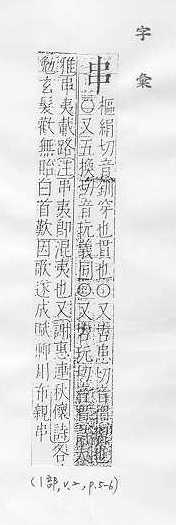 字彙
串
樞絹切音釧穿也貫也〇又古患切音
〇又五換切音玩義同〇又古玩切音
雅串夷載路注串夷卽混夷也又謝惠連秋懷詩各
勉玄髮歡無貽白首歎因歌遂成賦聊用布親串
(丨部, v.2, p.5-6)